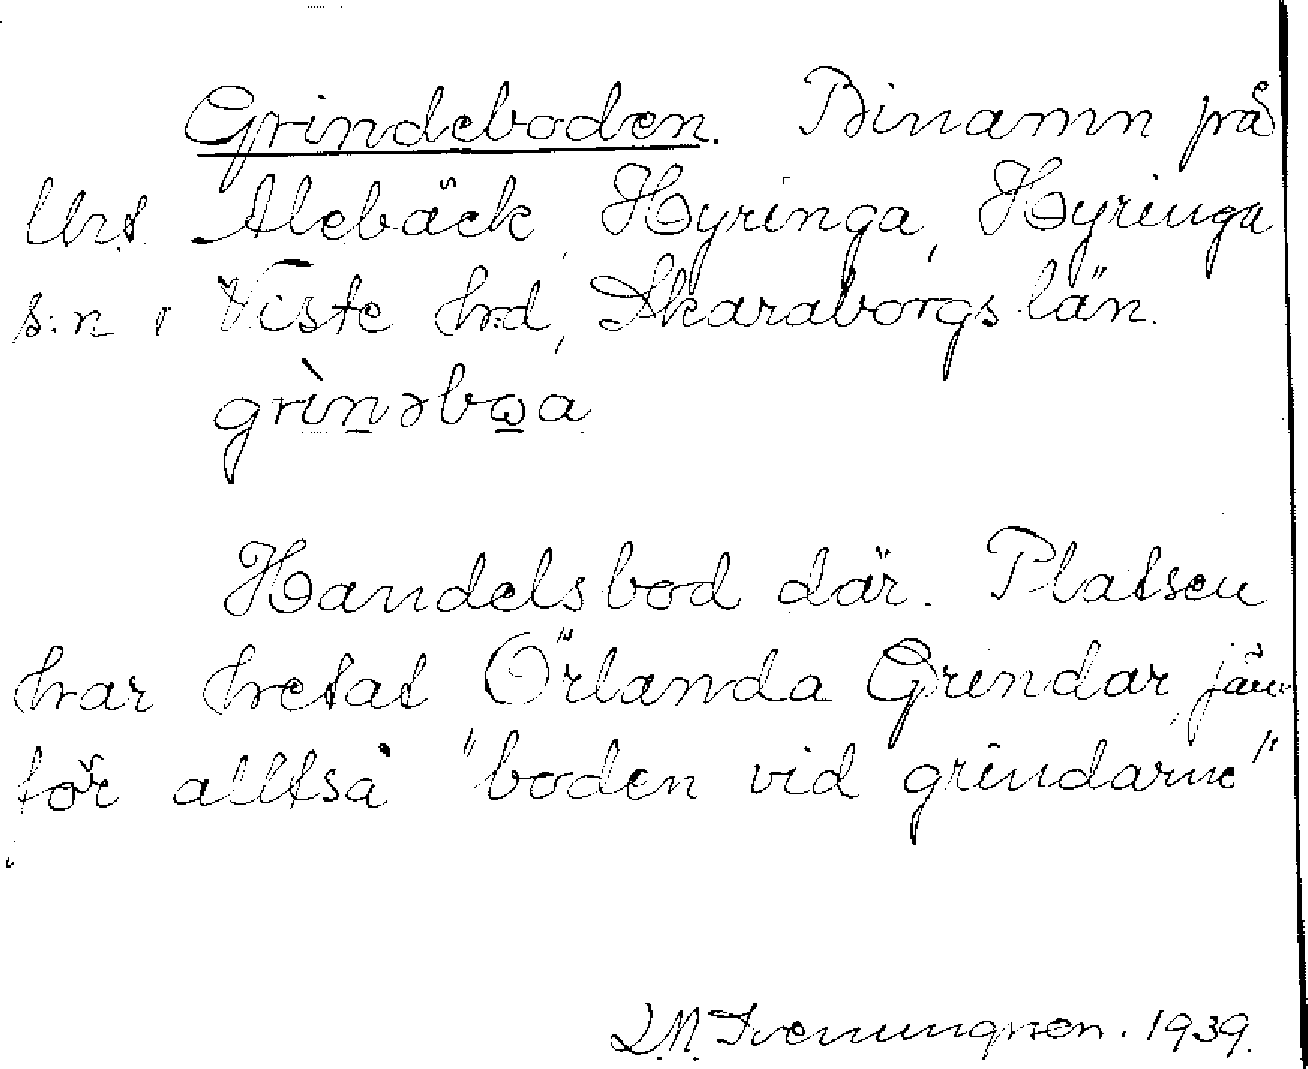 Grindeboden. Binamn på
Urs. Alebäck, Hyringa, Hyringa
s:n i Viste hrd, Skaraborgs län.
grìnəbωa
Handelsbod där. Platsen
har hetat Örlanda Grindar, jäm
för alltså "boden vid grindarne"
1939.